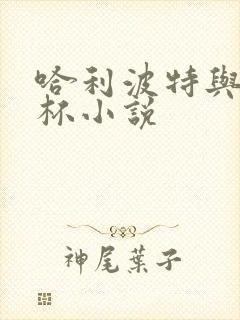 哈利波特與
杯小說
神尾葉子